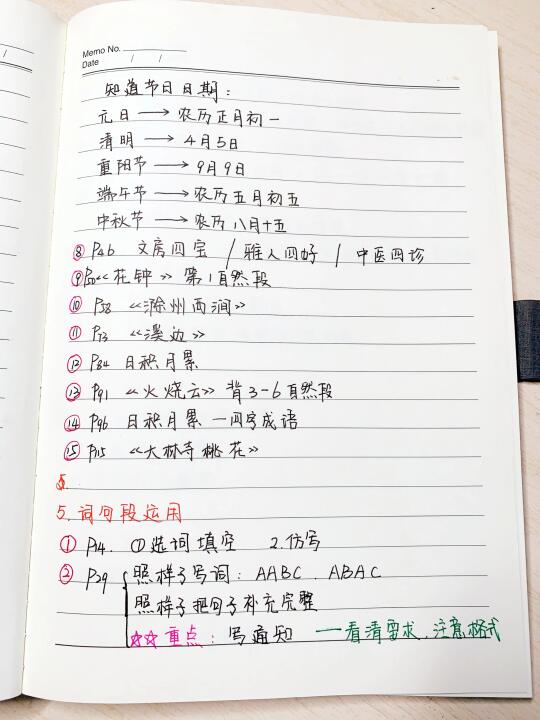 Memo No.
Date / /
知道节日日期：
元日 → 农历正月初一
清明 → 4月5日
重阳节 → 9月9日
端午节 → 农历五月初五
中秋节 → 农历八月十五
⑧ P46 文房四宝 / 雅人四好 / 中医四诊
⑨ P50《花钟》第1自然段
⑩ P58 《滁州西涧》
⑪ P73 《溪边》
⑫ P84 日积月累
⑬ P91 《火烧云》背3-6自然段
⑭ P96 日积月累 一四字成语
⑮ P115 《大林寺桃花》
5.词句段运用
① P14. ①选词填空 2.仿写
② P29 { 照样子写词：AABC．ABAC
照样子把句子补充完整
☆☆重点：写通知 —看清要求．注意格式